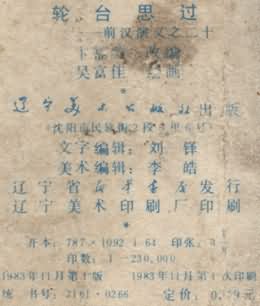 轮台思过
——前汉演义之二十
卞 改编
吴富佳 绘画
辽宁美术出版社出版
(沈阳市民族街2段 里 号)
文字编辑：刘 铎
美术编辑：李 皓
辽宁省新华书店发行
辽宁美术印刷厂印刷
开本：787×1092 1/64 印张：
印数：1—230,000
1983年11月第1版 1983年11月第1次印刷
统一书号：8161·0266 定价：0. 9元